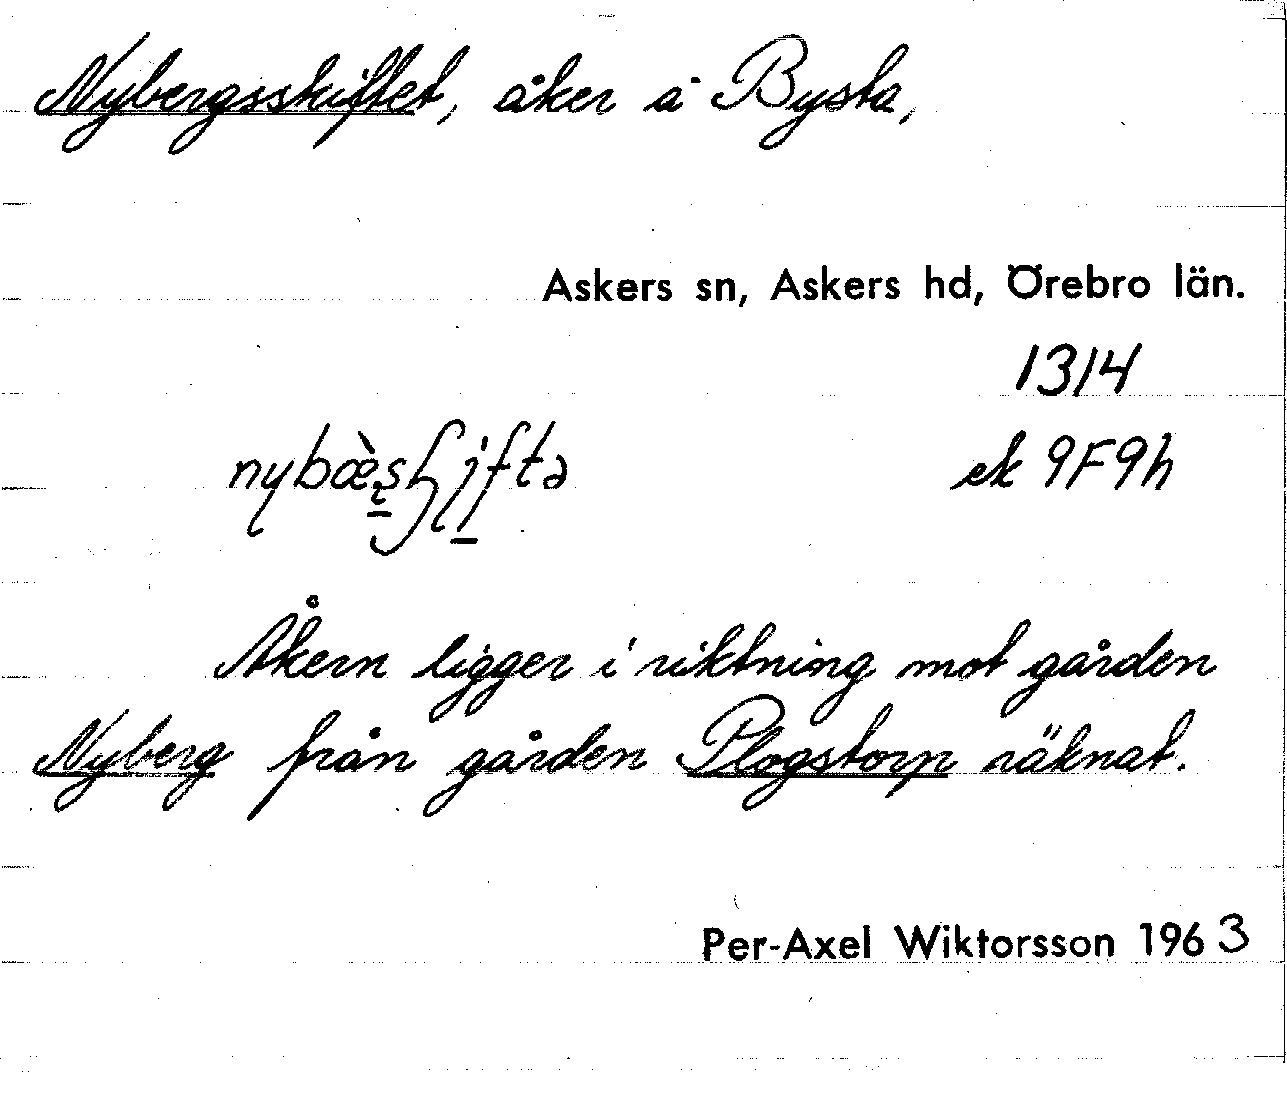 Nybergsskiftet, åker å Bysta,
Askers sn, Askers hd, Örebro län.
1314
ek 9F9h
Åkern ligger i riktning mot gården
Nyberg från gården Plogstorp räknat.
Per-Axel Wiktorsson 1963